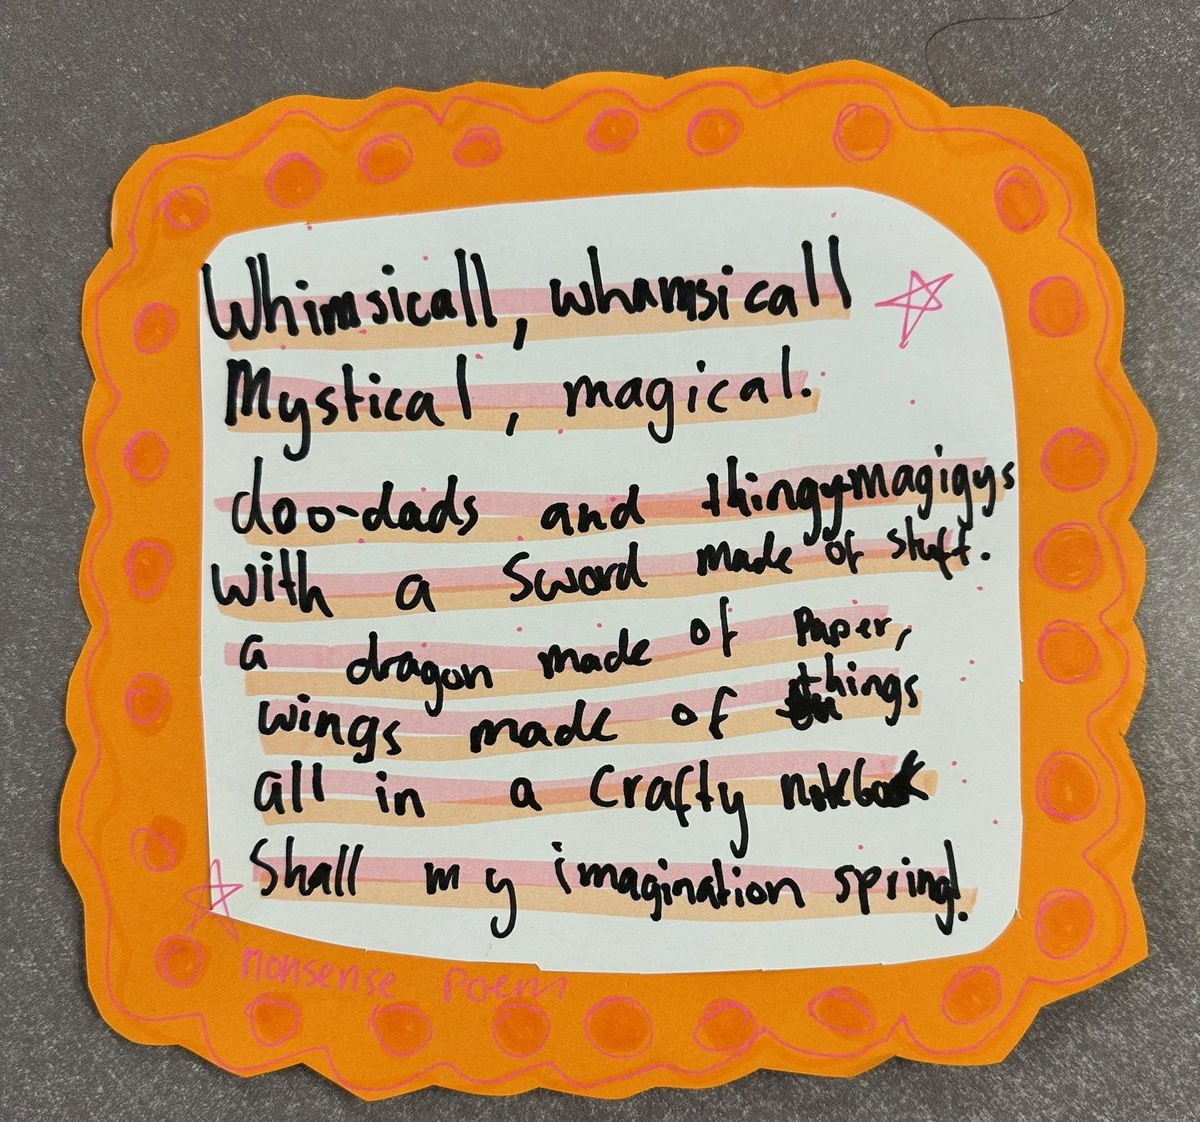 Whimsicall, whamsicall
Mystical, magical.
doo-dads and thingy-magigys
with a Sword made of stuff.
a dragon made of Paper,
wings made of things
all in a crafty notebook
Shall my imagination spring!
nonsense poem